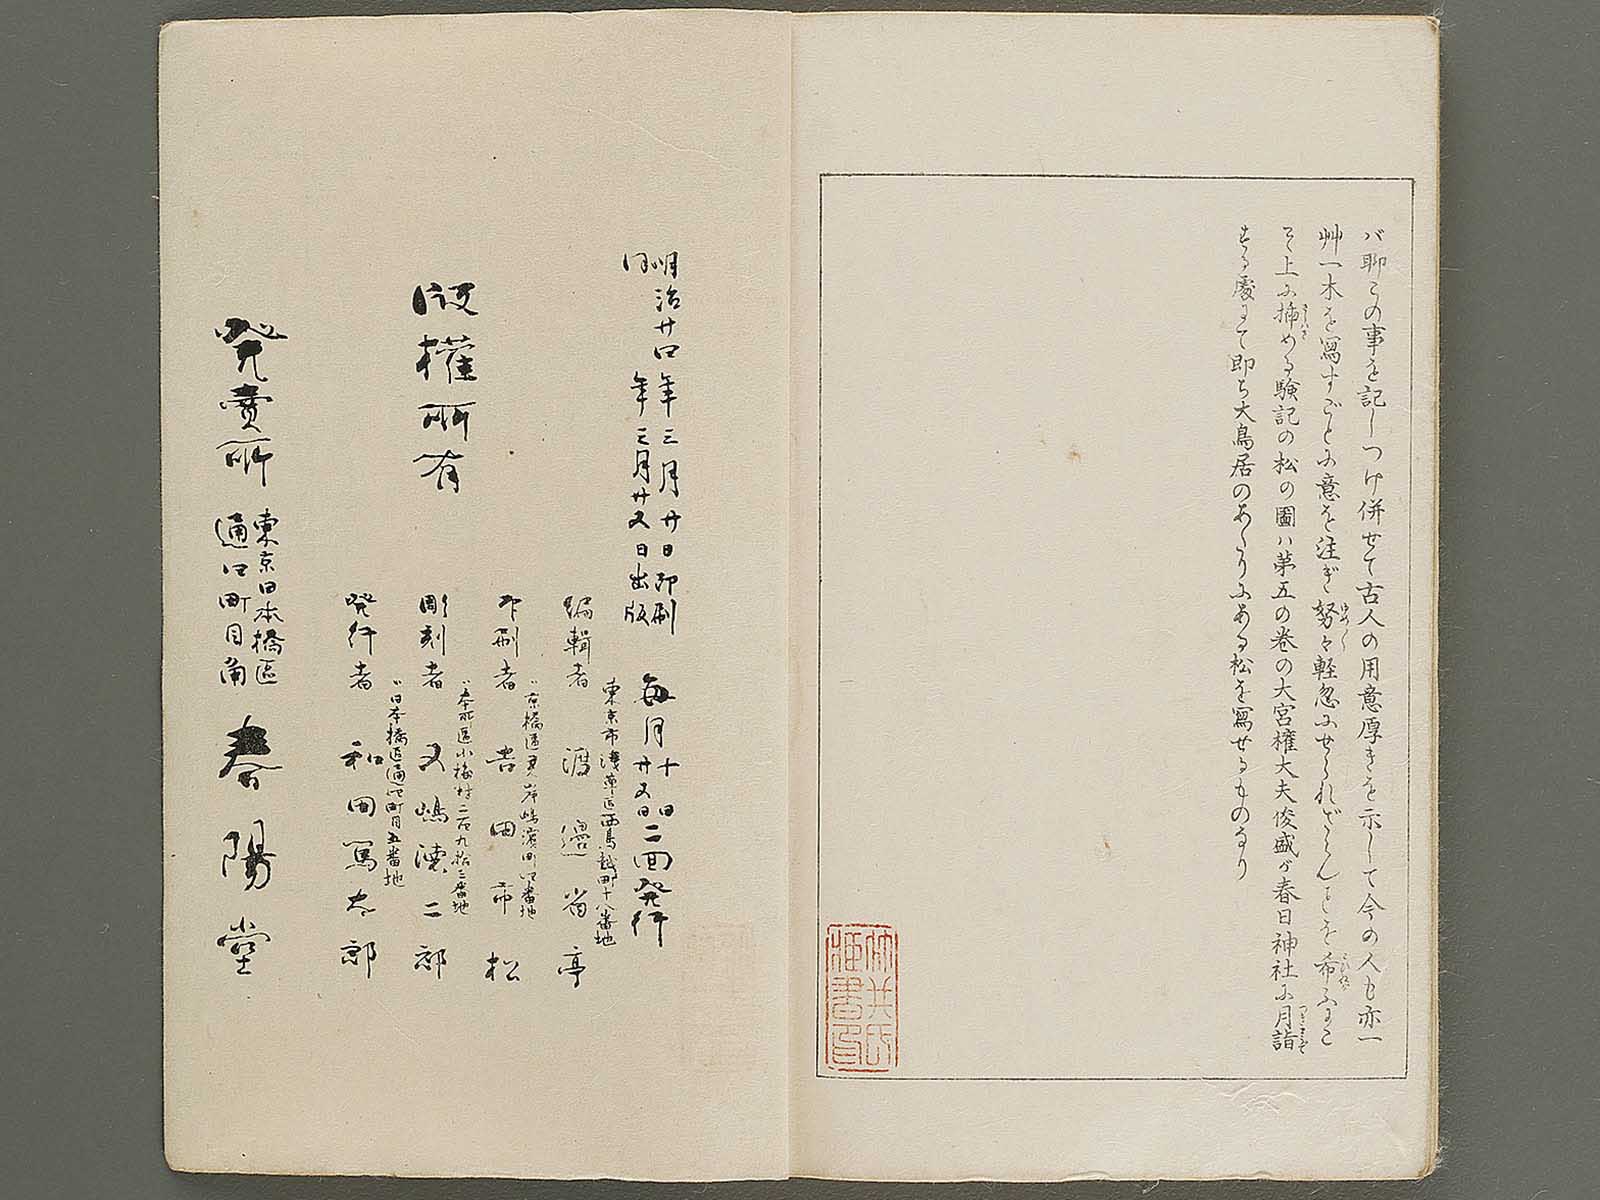 バ聊この事を記しつけ併せて古人の用意厚きを示して今の人も亦一
艸一木を寫すごとに意を注ぎ努々軽忽にせられざらんことを希ふまこ
と上に挿める験記の松の圖ハ第五の巻の大宮權大夫俊盛が春日神社に月詣
する處にて即ち大鳥居のあたりにある松を寫せるものなり
明治廿四年三月廿日印刷
同年三月廿五日出版
毎月十日廿五日二回発行
版權所有
東京市淺草區西鳥越町十八番地
編輯者 渡邉省亭
〃京橋區 岸嶋濱町 番地
印刷者 吉田市松
〃本所區小梅村二百九拾三番地
彫刻者 五嶋 二郎
〃日本橋區通四町目五番地
発行者 和田篤太郎
発賣所
東京日本橋區
通四町目角
春陽堂